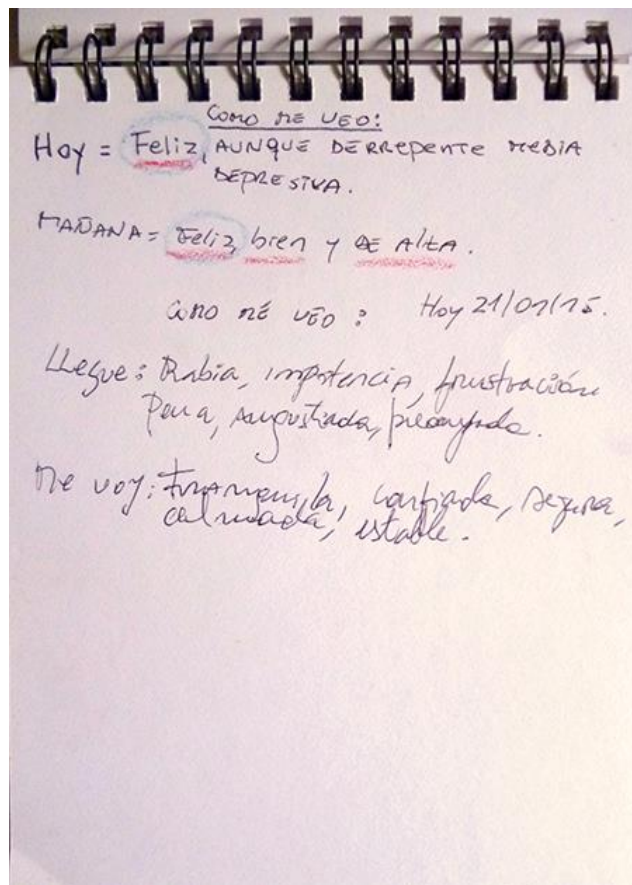 COMO ME VEO:
Hoy = Feliz, AUNQUE DERREPENTE MEDIA
DEPRESIVA.
MAÑANA = Feliz, bien y DE AltA.
COMO ME VEO : Hoy 21/01/15.
Llegue : Rabia, impotencia, frustración
Pena, Angustiada, preocupada.
Me voy : tranquila, confiada, segura,
calmada, estable.